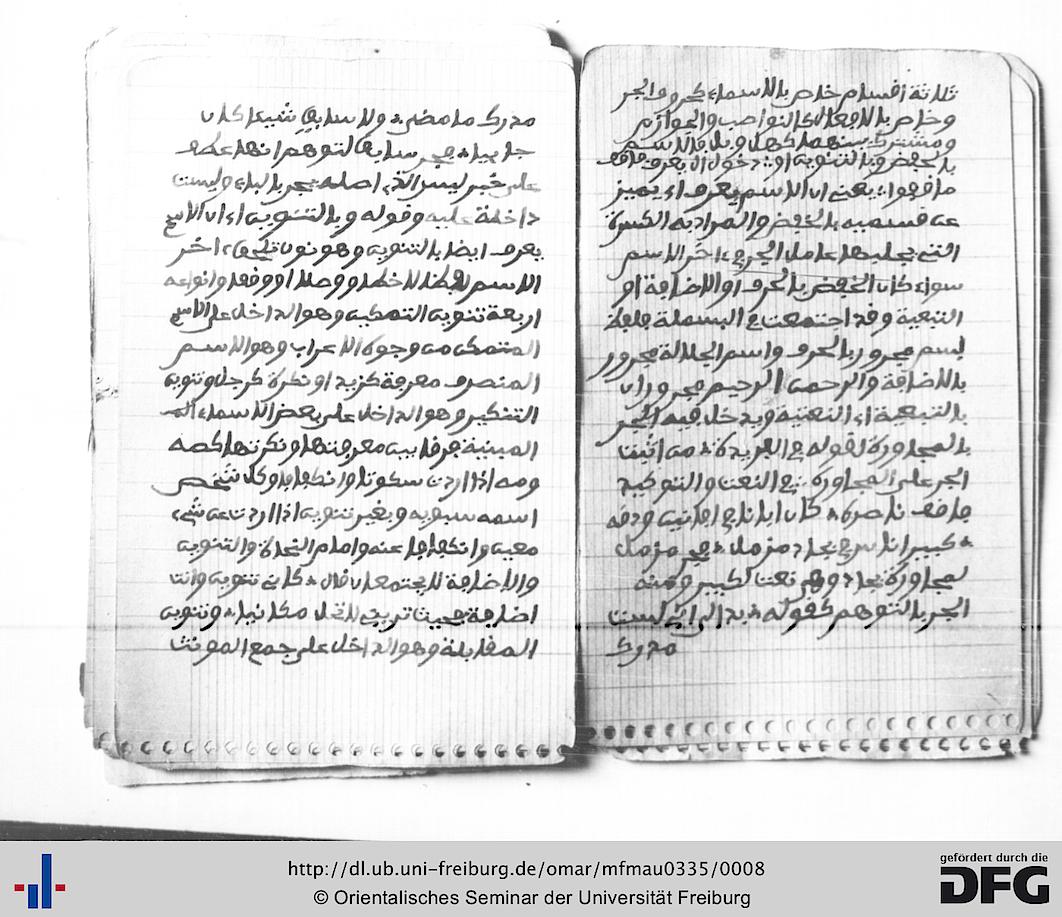 ثلاثة أقسام خاص بالاسماء كحروف الجر
وخاص بالافعال كالنواصب والجوازم
ومشترك بينهما كهل وبل فالاسم
بالخفض وبالتنوين أو دخول ال يعرف فاقف
ما قفوا يعني ان الاسم يعرف اي يميز
عن قسميه بالخفض والمراد به الكسرة
التي يجلبها عامل الجر في اخر الاسم
سواء كان الخفض بالحرف أو الاضافة او
التبعية وقد اجتمعت في البسملة
بسم مجرور بالحرف واسم الجلالة مجرور
بالاضافة والرحمن الرحيم مجروران
بالتبعية اي التعتية ويدخل فيه الجر
بالمجاورة لقوله في الفريدة من اثبت
الجر على المجاورة في النعت والتوكيد
كان ابانا في افانين ودقه
كبير اناس في بجاد مزمل فجر مزمل
لمجاورة بجاد وهو نعت لكبير ومنه
الجر بالتوهم كقوله بدا لي اني لست
مدرك
مدرك ما مضى ولا سابق شيئا كان
جاييا فجر سابق لتوهم انها عطف
على خبر ليس الذي اصله يجر بالباء وليست
داخلة عليه وقوله وبالتنوين اي ان الاسم
يعرف ايضا بالتنوين وهو نون تلحق اخر
الاسم لفظا لا خطا ووصلا لا وقفا وانواعه
اربعة تنوين التمكين وهو الداخل على الاسم
المتمكن من وجوه الاعراب وهو الاسم
المنصرف معرفة كزيد او نكرة كرجل وتنوين
التنكير وهو الداخل على بعض الاسماء
المبنية فرقا بين معرفتها ونكرتها كصه
ومه اذا اردت سكوتا وانكفافا وكل شخص
اسمه سبويه وبغير تنوين اذا اردت عن شيء
معين وانكفافا عنه وامام النحاة والتنوين
والاضافة لا يجتمعان قال كاني تنوين وانت
اضافة فحيث تريني لا تحل مكانيا وتنوين
المقابلة وهو الداخل على جمع المونث
http://dl.ub.uni-freiburg.de/omar/mfmau0335/0008
© Orientalisches Seminar der Universität Freiburg
gefördert durch die
DFG